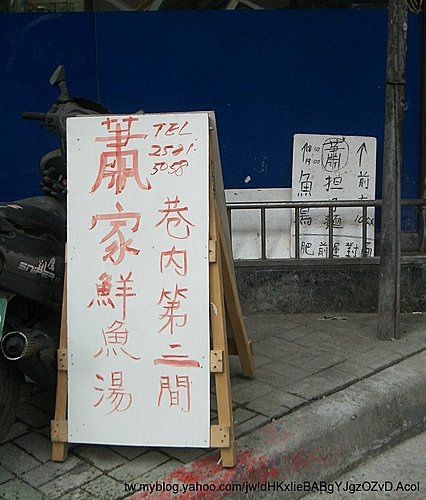 TEL
2581
5058
蕭家鮮魚湯
巷内第二間
蕭
担
麵
↑
前
魚
肥
前
對面
SNIPER
tw.myblog.yahoo.com/jw!dHKxlieBABgYJgzOZvD.Acol